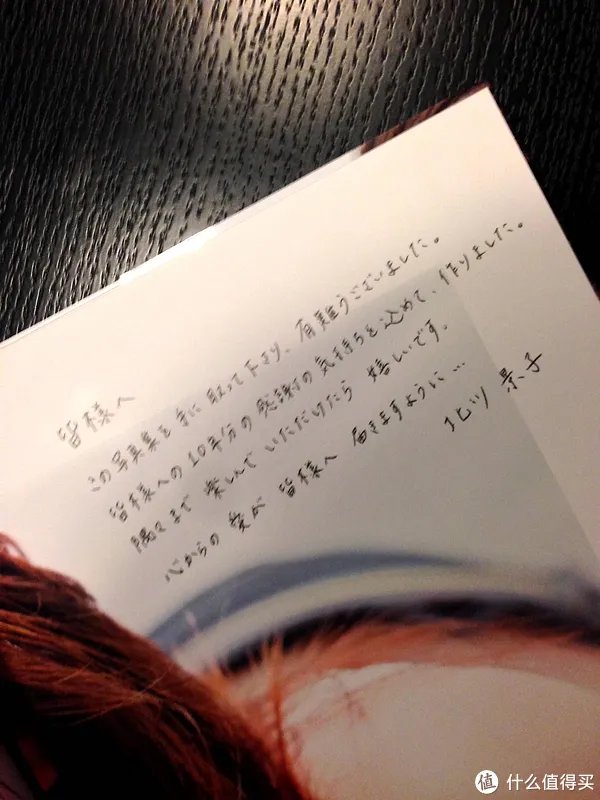 皆様へ
この写真集を手に取って下さり、有難うございました。
皆様への10年分の感謝の気持ちを込めて、作りました。
隅々まで楽しんでいただけたら嬉しいです。
心からの愛が皆様へ届きますように…
北川景子
值 什么值得买